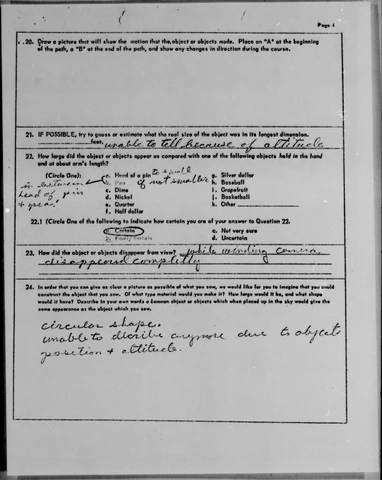 Page 4
20. Draw a picture that will show the motion that the object or objects made. Place an "A" at the beginning
of the path, a "B" at the end of the path, and show any changes in direction during the course.
21. IF POSSIBLE, try to guess or estimate what the real size of the object was in its longest dimension.
feet. unable to tell because of altitude
22. How large did the object or objects appear as compared with one of the following objects held in the hand
and at about arm's length?
(Circle One):
a. Head of a pin to small
b. Pea if not smaller
c. Dime
d. Nickel
e. Quarter
f. Half dollar
g. Silver dollar
h. Baseball
i. Grapefruit
j. Basketball
k. Other
in between
head of pin
+ pea
22.1 (Circle One of the following to indicate how certain you are of your answer to Question 22.
a. Certain
b. Fairly certain
c. Not very sure
d. Uncertain
23. How did the object or objects disappear from view? while winding camera
disappeared completely
24. In order that you can give as clear a picture as possible of what you saw, we would like for you to imagine that you could
construct the object that you saw. Of what type material would you make it? How large would it be, and what shape
would it have? Describe in your own words a common object or objects which when placed up in the sky would give the
same appearance as the object which you saw.
circular shape.
unable to discribe anymore due to object
position + altitude.